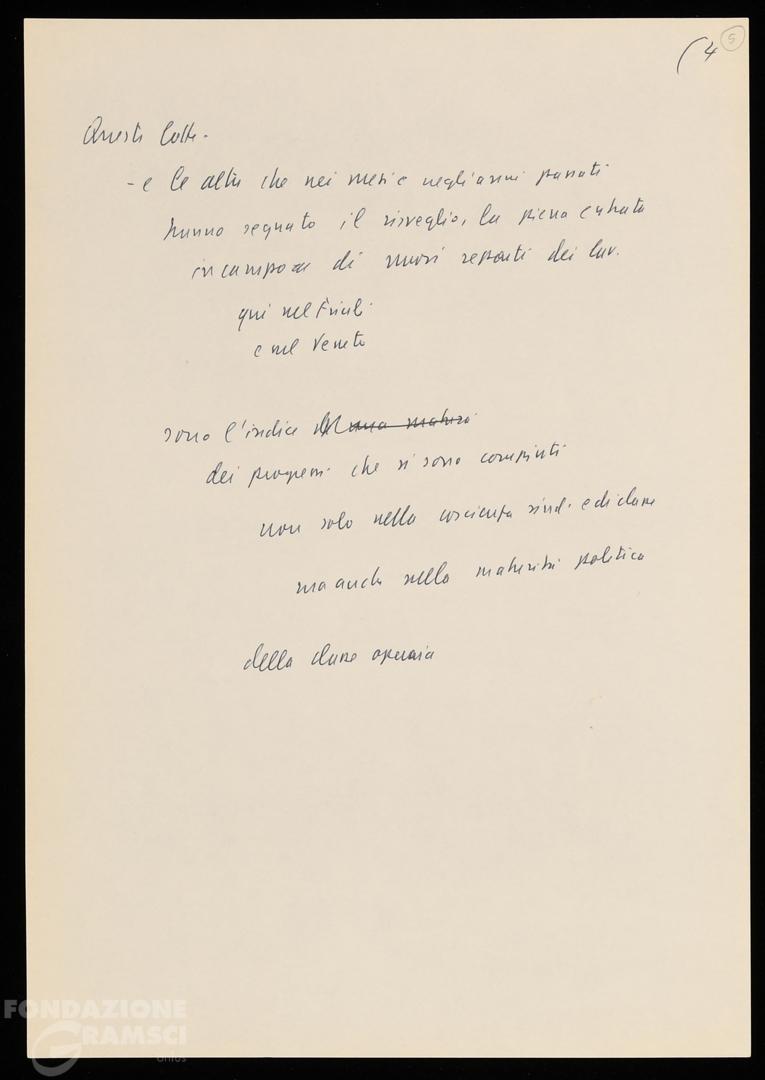 (4
5
Queste lotte -
- e le altre che nei mesi e negli anni passati
hanno segnato il risveglio, la piena entrata
in campo di nuovi reparti dei lav.
qui nel Friuli
e nel Veneto
sono l'indice una maturi
dei progressi che si sono compiuti
non solo nella coscienza sind. e di classe
ma anche nella maturità politica
della classe operaia
FONDAZIONE
GRAMSCI
onlus